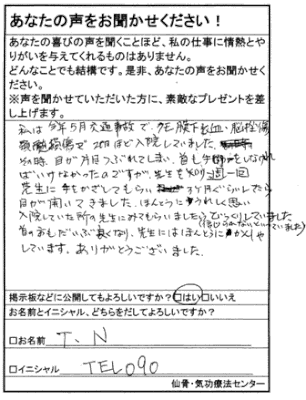 あなたの声をお聞かせください！
あなたの喜びの声を聞くことほど、私の仕事に情熱とや
りがいを与えてくれるものはありません。
どんなことでも結構です。是非、あなたの声をお聞かせく
ださい。
※声を聞かせていただいた方に、素敵なプレゼントを差
し上げます。
私は今年5月交通事故で、クモ膜下出血・脳挫傷
入院していました。
その時、目が片目つぶれてしまい、首も手術
ばいけなかったのですが、先生を知り週一回
先生に手をかざしてもらい 3ヶ月ぐらいしたら
目が開いてきました。ほんとうにうれしく思い
入院していた所の先生にみてもらいましたらびっくりしていました
(信じられないといっていました)
首のほもだいぶ良くなり、先生にはほんとうにかんしゃ
しています。ありがとうございました。
掲示板などに公開してもよろしいですか？□はい□いいえ
お名前とイニシャル、どちらをだしてよろしいですか？
□お名前 T．N
□イニシャル TEL090
仙骨・気功療法センター